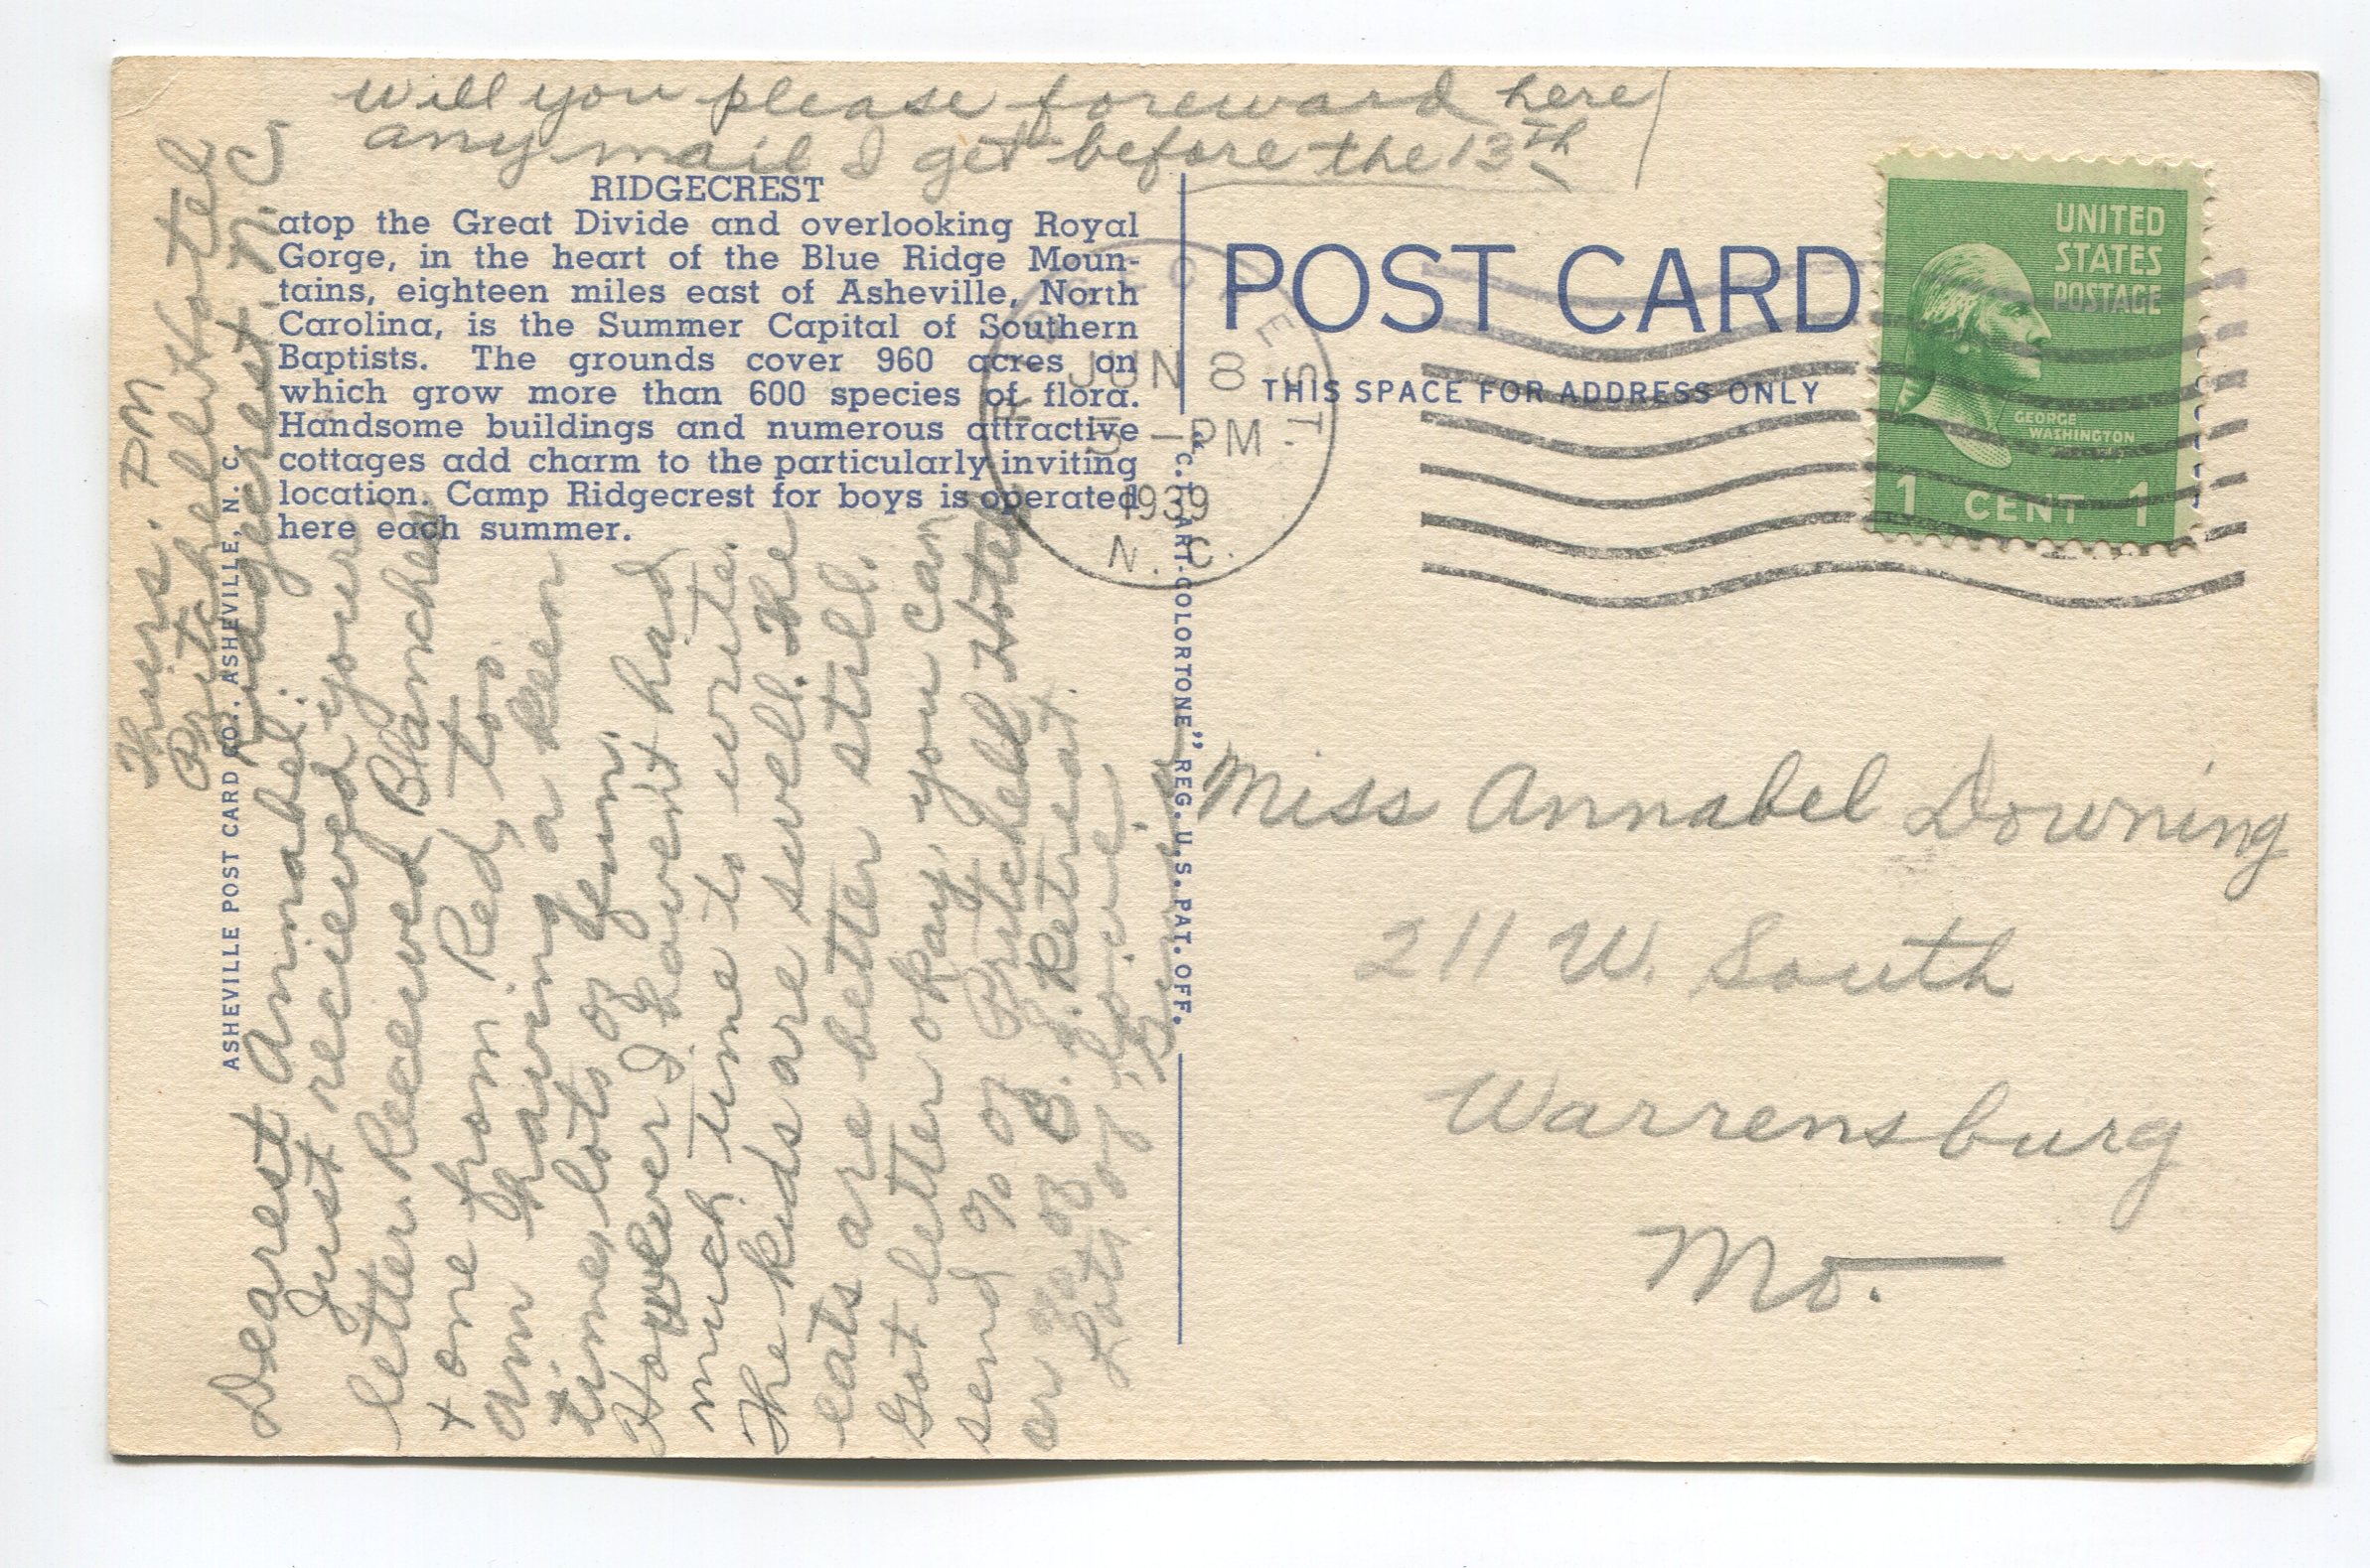 will you please foreward here
any mail I get before the 13th
RIDGECREST
atop the Great Divide and overlooking Royal
Gorge, in the heart of the Blue Ridge Moun-
tains, eighteen miles east of Asheville, North
Carolina, is the Summer Capital of Southern
Baptists. The grounds cover 960 acres on
which grow more than 600 species of flora.
Handsome buildings and numerous attractive
cottages add charm to the particularly inviting
location. Camp Ridgecrest for boys is operated
here each summer.
ASHEVILLE POST CARD CO., ASHEVILLE, N. C.
Thurs. PM
Pritchell Hotel
Ridgecrest, N.C
Dearest Annabel:
Just recieved your
letter. Recieved Blanches
+ one from Red, too.
am having a keen
time, lots of fun.
However I havent had
much time to write.
The kids are swell. The
eats are better still.
Got letter okay, you can
send % of Pritchell Hotel
or % of B. Y. Retreat.
Lots of love
"C.T. ART-COLORTONE" REG. U.S. PAT. OFF.
POST CARD
THIS SPACE FOR ADDRESS ONLY
RIDGECREST.
JUN 8
5 - PM
1939
N. C.
UNITED
STATES
POSTAGE
GEORGE
WASHINGTON
1 CENT 1
Miss Annabel Downing
211 W. South
Warrensburg
Mo.